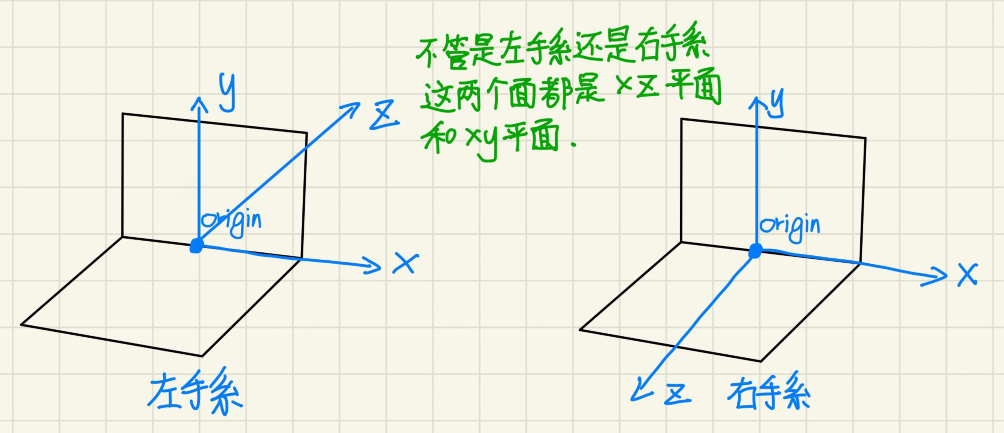 不管是左手系还是右手系
这两个面都是 XZ 平面
和 xy平面.
y
Z
origin
X
左手系
y
origin
X
Z
右手系